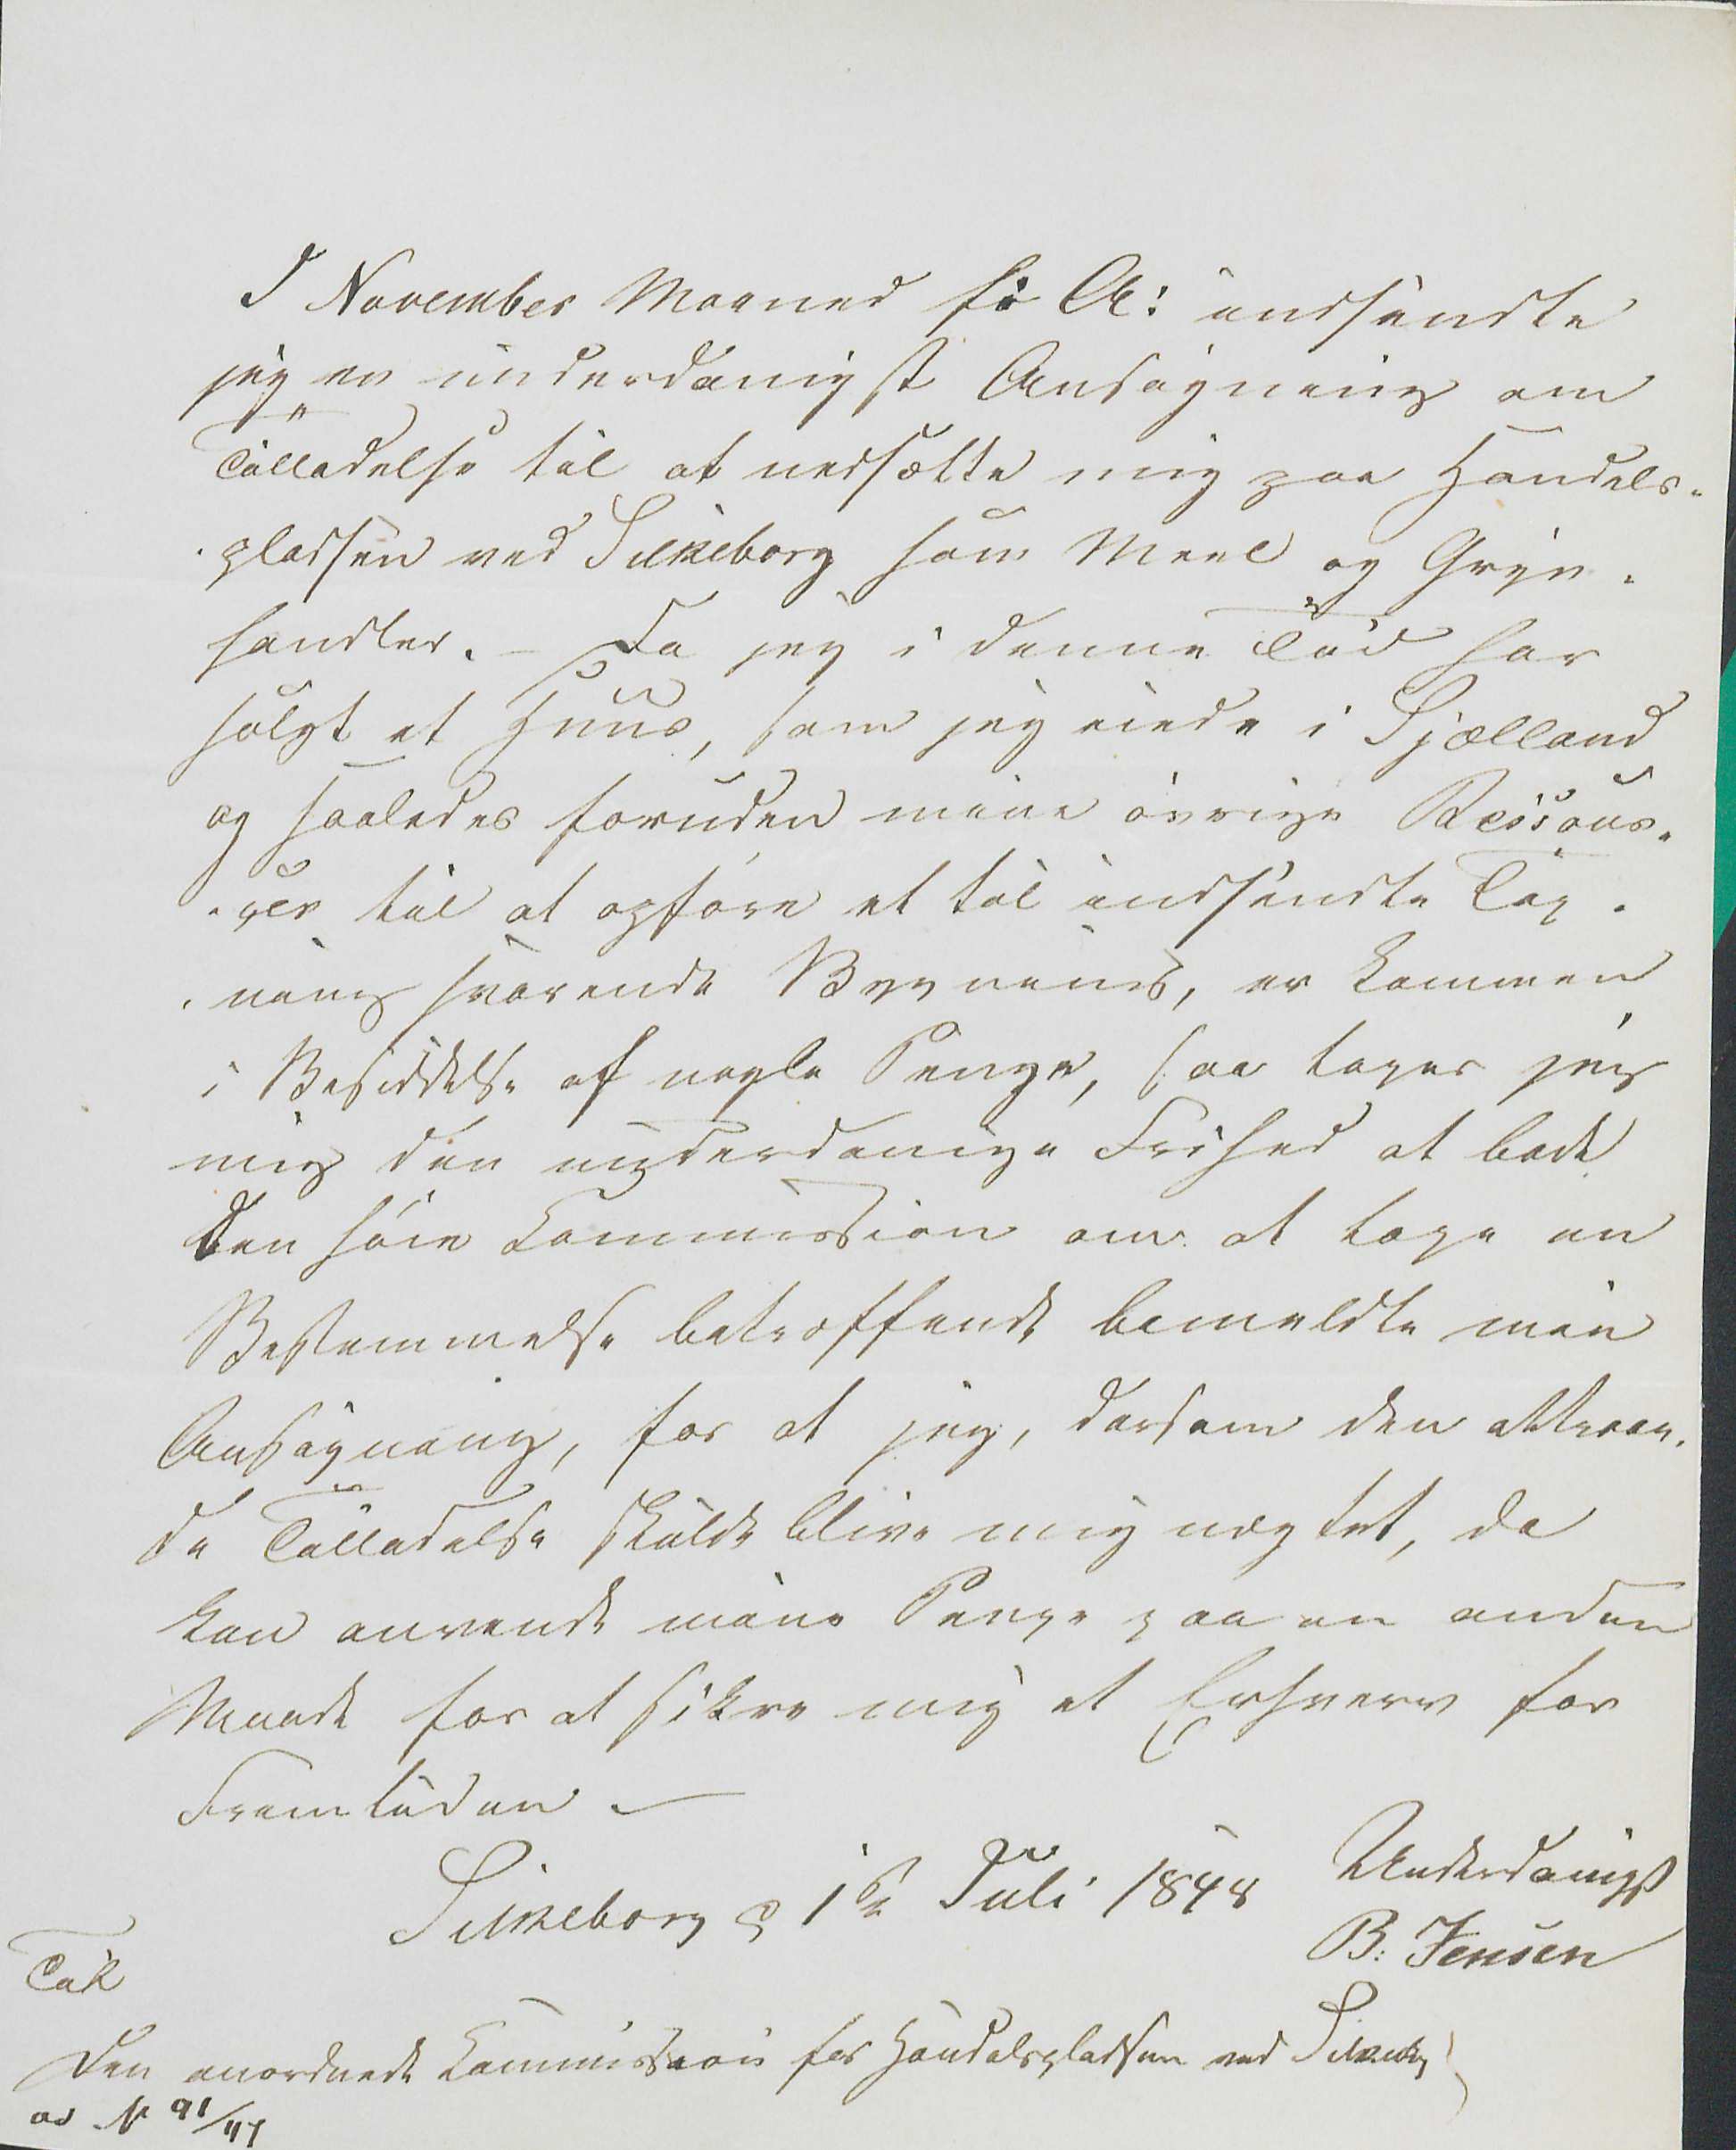 I November Maaned f: A: indsendte
jeg en underdanigst Ansøgning om
Tilladelse til at nedsætte mig paa Handels-
-pladsen ved Silkeborg som Meel og Gryn-
handler. – Da jeg i denne Tid har
solgt et Huus, som jeg eiede i Sjælland
og saaledes foruden mine øvrige Ressour-
-cer til at opføre et til indsendte Teg-
-ning svarende Bygning, er kommen
i Besiddelse af nogle Penge, saa tager jeg
mig den underdanige Frihed at bede
den høie Commission om at tage en
Bestemmelse betræffende bemeldte min
Ansøgning, for at jeg, dersom den attraae-
de Tilladelse skulde blive mig nægtet, da
kan anvende mine Penge paa en anden
Maade for at sikre mig et Erhverv for
Fremtiden –
Silkeborg d 1ste Juli 1848
Underdanigst
B: Jensen
Til
Den anordnede Commission for Handelspladsen ved Silkeborg
ad № 91/47